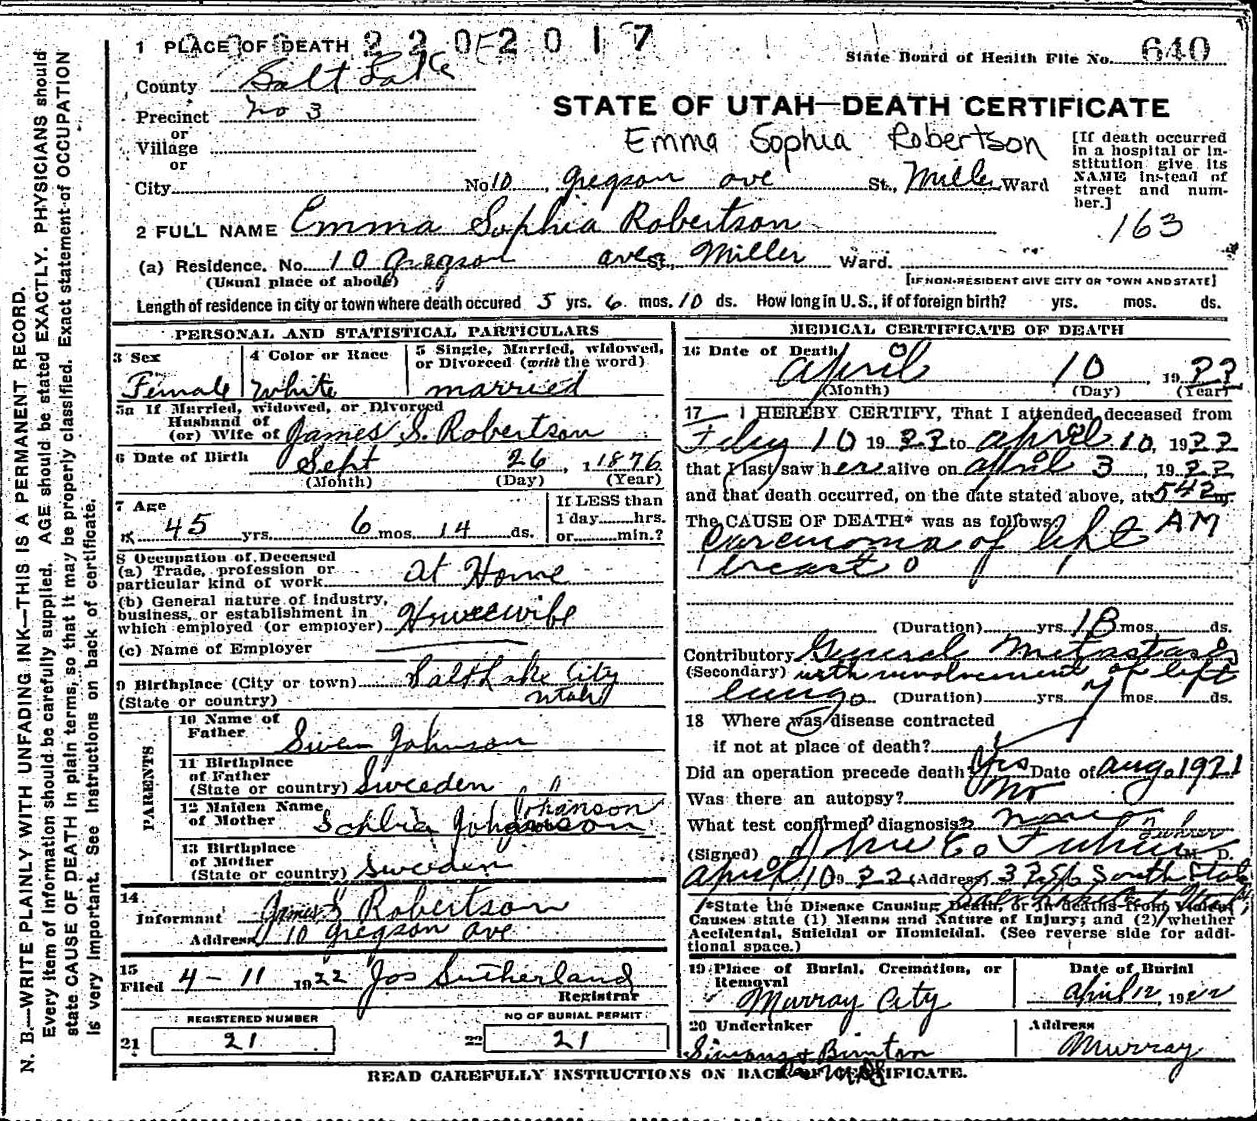 1 PLACE OF DEATH 2 2 0 2 0 1 7
State Board of Health File No. 640
County Salt Lake
STATE OF UTAH—DEATH CERTIFICATE
Precinct No 3
or
Village
or
Emma Sophia Robertson
[If death occurred in a hospital or institution give its NAME instead of street and number.]
City No 10, Gregson ave St., Miller Ward
163
2 FULL NAME Emma Sophia Robertson
(a) Residence. No. 10 Gregson ave St., Miller Ward.
(Usual place of abode)
[IF NON-RESIDENT GIVE CITY OR TOWN AND STATE]
Length of residence in city or town where death occured 5 yrs. 6 mos. 10 ds. How long in U.S., if of foreign birth? yrs. mos. ds.
PERSONAL AND STATISTICAL PARTICULARS
3 Sex
Female
4 Color or Race
White
5 Single, Married, widowed,
or Divorced (write the word)
married
5a If Married, widowed, or Divorced
Husband of
(or) Wife of James S. Robertson
6 Date of Birth Sept 26, 1876
(Month) (Day) (Year)
7 Age
45 yrs. 6 mos. 14 ds.
If LESS than
1 day......hrs.
or......min.?
8 Occupation of Deceased
(a) Trade, profession or
particular kind of work At Home
(b) General nature of industry,
business, or establishment in
which employed (or employer) Housewife
(c) Name of Employer
9 Birthplace (City or town) Salt Lake City
(State or country) Utah
PARENTS
10 Name of
Father Swen Johnson
11 Birthplace
of Father
(State or country) Sweeden
12 Maiden Name
of Mother Sophia Johanson
13 Birthplace
of Mother
(State or country) Sweeden
14
Informant James S Robertson
Address 10 Gregson Ave
15
Filed 4-11 1922 Jos Sutherland
Registrar
REGISTERED NUMBER
21 21
NO OF BURIAL PERMIT
22 21
MEDICAL CERTIFICATE OF DEATH
16 Date of Death April 10, 1922
(Month) (Day) (Year)
17 I HEREBY CERTIFY, That I attended deceased from
Feby 10 1922 to april 10, 1922
that I last saw her alive on april 3, 1922
and that death occurred, on the date stated above, at 542 m.
The CAUSE OF DEATH* was as follows: AM
Carcinoma of left
breast
(Duration) yrs. 18 mos. ds.
Contributory General Metastasis
(Secondary) with involvement of left
lung (Duration) yrs. mos. ds.
18 Where was disease contracted
if not at place of death?
Did an operation precede death? Yes Date of aug. 1921
Was there an autopsy? No
What test confirmed diagnosis?
(Signed) M. D.
April 10 1922 (Address) South State
*State the Disease Causing Death, or in deaths from Violent
Causes state (1) Means and Nature of Injury; and (2) whether
Accidental, Suicidal or Homicidal. (See reverse side for additional space.)
19 Place of Burial, Cremation, or
Removal
Murray City
Date of Burial
April 12, 1922
20 Undertaker
Address
Murray
READ CAREFULLY INSTRUCTIONS ON BACK OF CERTIFICATE.
N. B.—WRITE PLAINLY WITH UNFADING INK—THIS IS A PERMANENT RECORD.
Every item of information should be carefully supplied. AGE should be stated EXACTLY. PHYSICIANS should
state CAUSE OF DEATH in plain terms, so that it may be properly classified. Exact statement of OCCUPATION
is very important. See instructions on back of certificate.